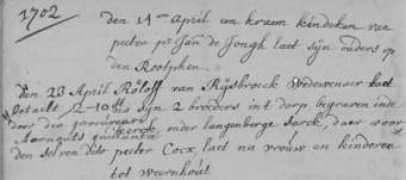 1702
den 14en April een kraem kindeken van
peeter pr Jan de Jongh laet sijn ouders op
den Rootphen
Den 23 April Röloff van Rijsbroeck Wedewenaer laet
2-10 sijn 2 broeders int dorp, begraven inde
door den
kerck onder Langenberge sarck, daer voor
den selven peeter Cocx, laet na vrouw en kinderen
tot weernhout